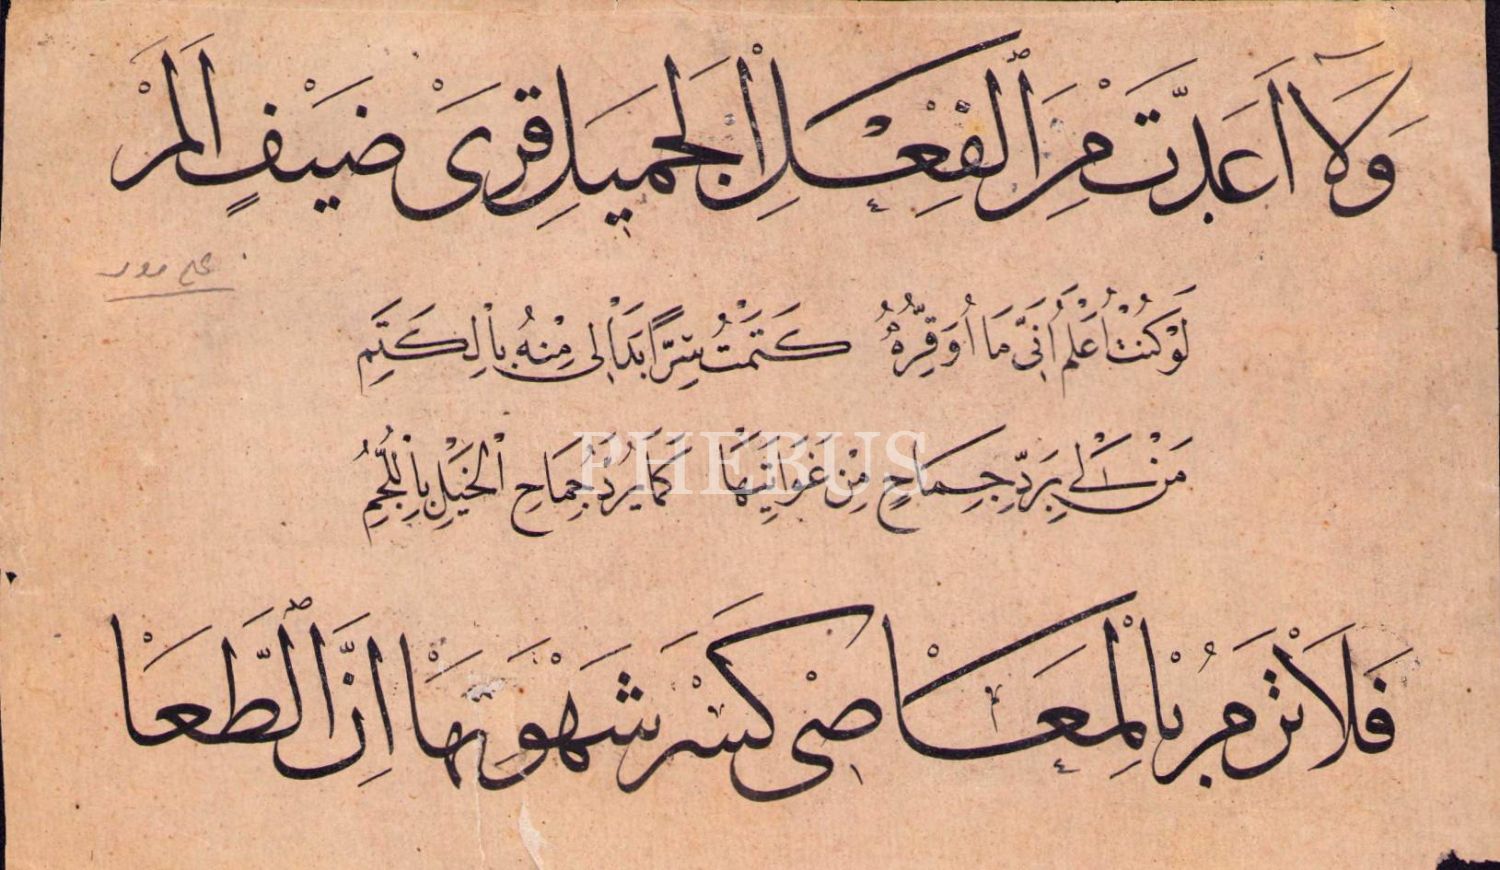 وَلَا اَعَدَّتْ مِنَ الْفِعْلِ الْجَمِيلِ قِرَىٰ ضَيْفٍ اَلَمَّ
لَوْ كُنْتُ اَعْلَمُ اَنِّي مَا اُوَقِّرُهُ كَتَمْتُ سِرًّا بَدَا لِي مِنْهُ بِالْكَتَمِ
PHEBUS
مَنْ لِي بِرَدِّ جِمَاحٍ مِنْ غَوَايَتِهَا كَمَا يُرَدُّ جِمَاحُ الْخَيْلِ بِاللُّجُمِ
فَلَا تَرُمْ بِالْمَعَاصِي كَسْرَ شَهْوَتِهَا اِنَّ الطَّعَا